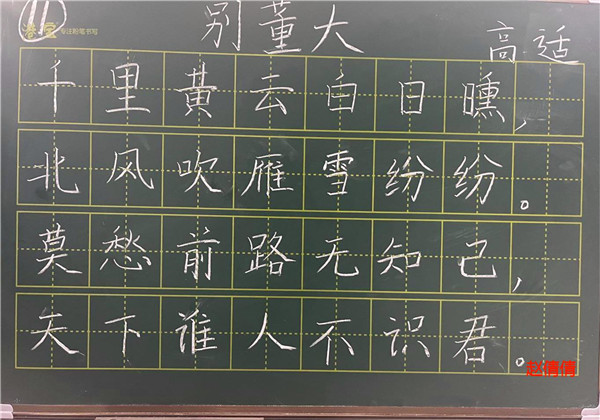 11
专注粉笔书写
别董大
高适
千里黄云白日曛，
北风吹雁雪纷纷。
莫愁前路无知己，
天下谁人不识君。
赵倩倩